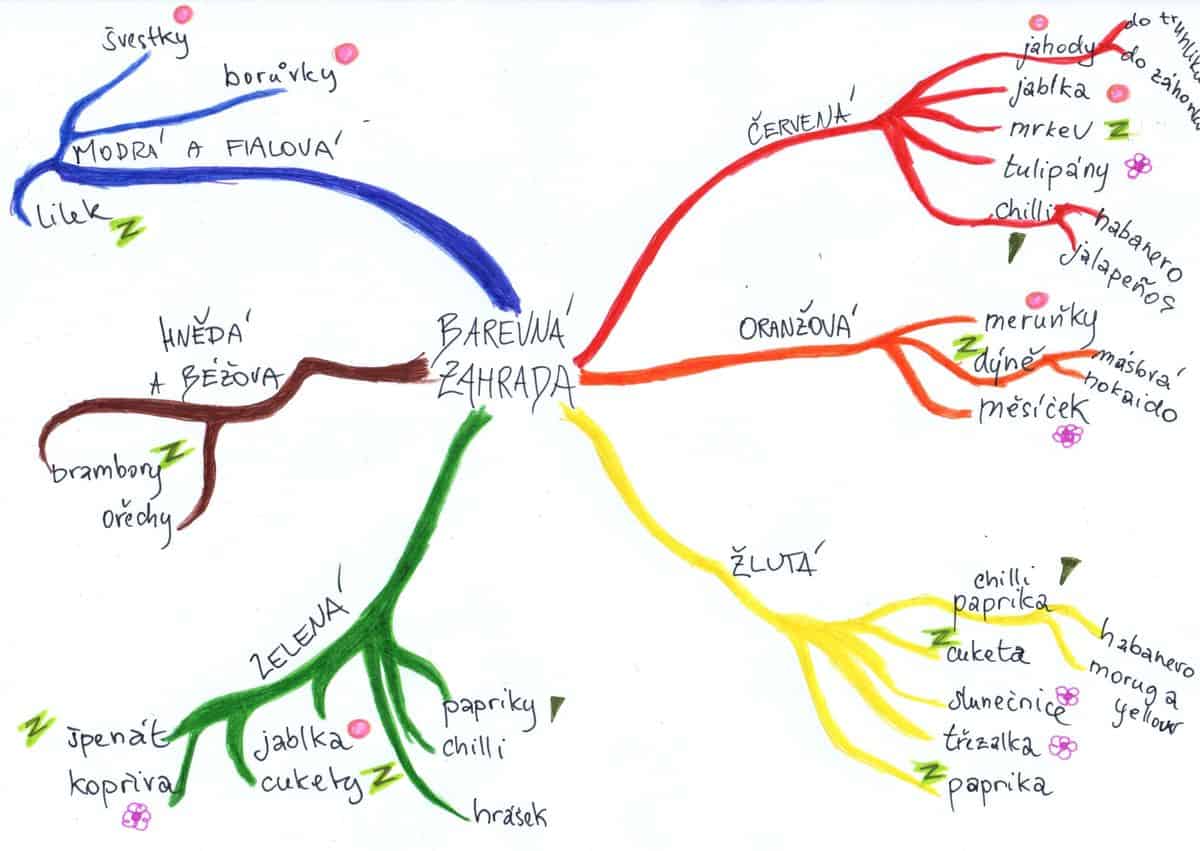 BAREVNÁ
ZAHRADA
MODRÁ A FIALOVÁ
švestky
borůvky
lilek
Z
ČERVENÁ
jahody
do truhlíku
do záhonku
jablka
mrkev Z
tulipány
chilli
habanero
jalapeños
ORANŽOVÁ
meruňky
Z
dýně
máslová
hokaido
měsíček
ŽLUTÁ
chilli
paprika
habanero
moruga
yellow
Z
cuketa
slunečnice
třezalka
Z
paprika
ZELENÁ
Z
špenát
kopřiva
jablka
cukety Z
papriky
chilli
hrášek
HNĚDÁ
A BÉŽOVA
brambory
Z
ořechy